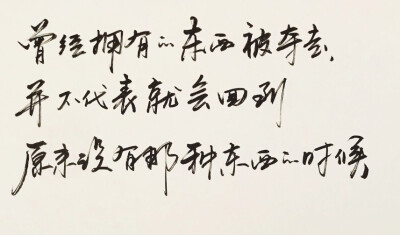 曾经拥有的东西被夺去,
并不代表就会回到
原来没有那种东西的时候